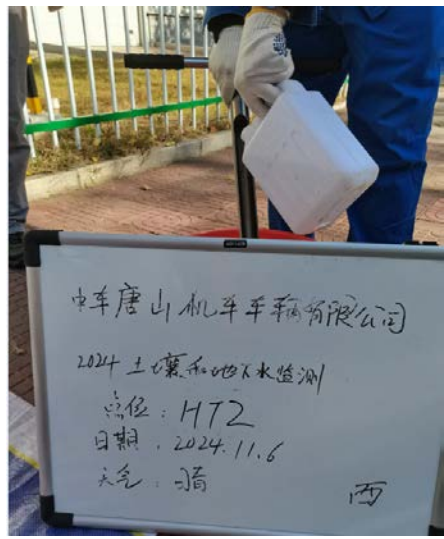 中车唐山机车车辆有限公司
2024土壤和地下水监测
点位：HT2
日期：2024.11.6
天气：晴
西